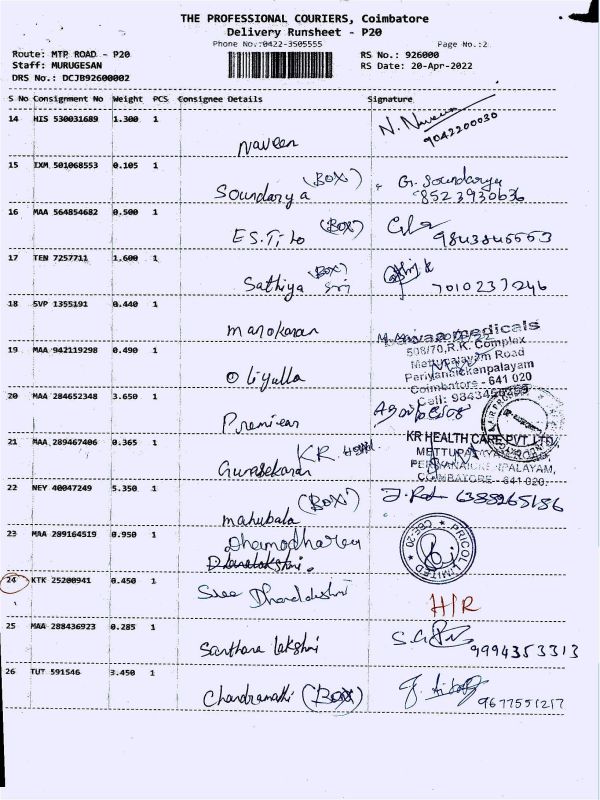 THE PROFESSIONAL COURIERS, Coimbatore
Delivery Runsheet - P20
Phone No.:0422-3505555
Page No.:2
Route: MTP ROAD - P20
RS No.: 926000
Staff: MURUGESAN
RS Date: 20-Apr-2022
DRS No.: DCJB92600002
S No Consignment No Weight PCS Consignee Details Signature
14 HIS 530031689 1.300 1
Naveen N. Naveen
9042200030
15 IXM 501068553 0.105 1
Soundarya (BOX) G. Soundarya
8523930636
16 MAA 564854682 0.500 1
(BOX)
17 TEN 7257711 1.600 1
Sathiya Sri (BOX)
7010237246
18 SVP 1355191 0.440 1
manokaran
medicals
508/70,R.K. Complex
19 MAA 942119298 0.490 1
Mettupalayam Road
Periyanaickenpalayam
Coimbatore - 641 020
20 MAA 284652348 3.650 1
Premier
21 MAA 289467406 0.365 1
KR HEALTH CARE PVT LTD
Gunasekaran K.R.
METTUPALAYAM
PERIYANAICKENPALAYAM,
COIMBATORE - 641 020.
22 NEY 40047249 5.350 1
mahubala (BOX)
6388265186
23 MAA 289164519 0.950 1
Dhamodharan
PRICOL LIMITED CBE-20
Dhanalakshmi.
24 KTK 25200941 0.450 1
Sree
H/R
25 MAA 288436923 0.285 1
Santhana lakshmi
9994353313
26 TUT 591546 3.450 1
(BOX)
9677551217